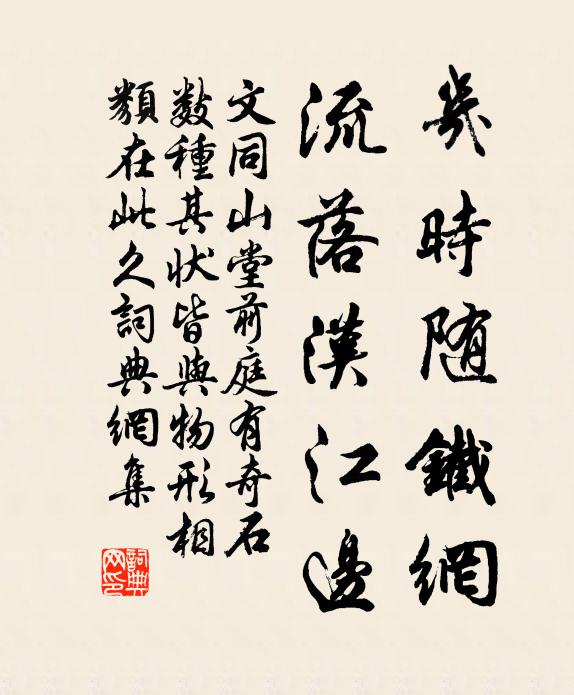 幾時隨鐵網
流落漢江邊
文同山堂前庭有奇石
數種其狀皆與物形相
類在此久詞典網集
詞典网印